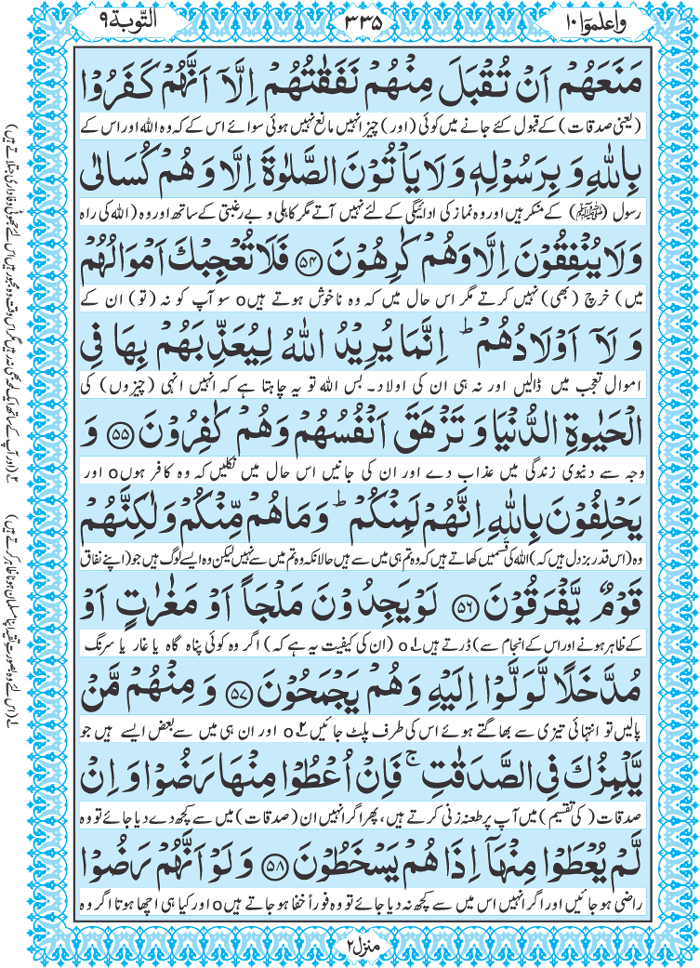 واعلموا ١٠
٣٣٥
التوبة ٩
مَنَعَهُمْ اَنْ تُقْبَلَ مِنْهُمْ نَفَقٰتُهُمْ اِلَّاۤ اَنَّهُمْ كَفَرُوْا
(یعنی صدقات) کے قبول کئے جانے میں کوئی (اور) چیز انہیں مانع نہیں ہوئی سوائے اس کے کہ وہ اللہ اور اس کے
بِاللّٰهِ وَ بِرَسُوْلِهٖ وَ لَا يَاْتُوْنَ الصَّلٰوةَ اِلَّا وَ هُمْ كُسَالٰى
رسول (ﷺ) کے منکر ہیں اور وہ نماز کی ادائیگی کے لئے نہیں آتے مگر کاہلی و بے رغبتی کے ساتھ اور وہ (اللہ کی راہ
وَ لَا يُنْفِقُوْنَ اِلَّا وَ هُمْ كٰرِهُوْنَ ۵۴ فَلَا تُعْجِبْكَ اَمْوَالُهُمْ
میں) خرچ (بھی) نہیں کرتے مگر اس حال میں کہ وہ ناخوش ہوتے ہیںo سو آپ کو نہ (تو) ان کے
وَ لَاۤ اَوْلَادُهُمْ ؕ اِنَّمَا يُرِيْدُ اللّٰهُ لِيُعَذِّبَهُمْ بِهَا فِى
اموال تعجب میں ڈالیں اور نہ ہی ان کی اولاد۔ بس اللہ تو یہ چاہتا ہے کہ انہیں انہی (چیزوں) کی
الْحَيٰوةِ الدُّنْيَا وَ تَزْهَقَ اَنْفُسُهُمْ وَ هُمْ كٰفِرُوْنَ ۵۵ وَ
وجہ سے دنیوی زندگی میں عذاب دے اور ان کی جانیں اس حال میں نکلیں کہ وہ کافر ہوںo اور
يَحْلِفُوْنَ بِاللّٰهِ اِنَّهُمْ لَمِنْكُمْ ؕ وَ مَا هُمْ مِّنْكُمْ وَ لٰكِنَّهُمْ
وہ (اس قدر بزدل ہیں کہ) اللہ کی قسمیں کھاتے ہیں کہ وہ تم ہی میں سے ہیں حالانکہ وہ تم میں سے نہیں لیکن وہ ایسے لوگ ہیں جو (اپنے نفاق
قَوْمٌ يَّفْرَقُوْنَ ۵۶ لَوْ يَجِدُوْنَ مَلْجَاً اَوْ مَغٰرٰتٍ اَوْ
کے ظاہر ہونے اور اس کے انجام سے) ڈرتے ہیں۱o (ان کی کیفیت یہ ہے کہ) اگر وہ کوئی پناہ گاہ یا غار یا سرنگ
مُدَّخَلًا لَّوَلَّوْا اِلَيْهِ وَ هُمْ يَجْمَحُوْنَ ۵۷ وَ مِنْهُمْ مَّنْ
پالیں تو انتہائی تیزی سے بھاگتے ہوئے اس کی طرف پلٹ جائیں۲o اور ان ہی میں سے بعض ایسے ہیں جو
يَّلْمِزُكَ فِى الصَّدَقٰتِ ۚ فَاِنْ اُعْطُوْا مِنْهَا رَضُوْا وَ اِنْ
صدقات (کی تقسیم) میں آپ پر طعنہ زنی کرتے ہیں، پھر اگر انہیں ان (صدقات) میں سے کچھ دے دیا جائے تو وہ
لَّمْ يُعْطَوْا مِنْهَاۤ اِذَا هُمْ يَسْخَطُوْنَ ۵۸ وَ لَوْ اَنَّهُمْ رَضُوْا
راضی ہو جائیں اور اگر انہیں اس میں سے کچھ نہ دیا جائے تو وہ فوراً خفا ہو جاتے ہیںo اور کیا ہی اچھا ہوتا اگر وہ
منزل ۲